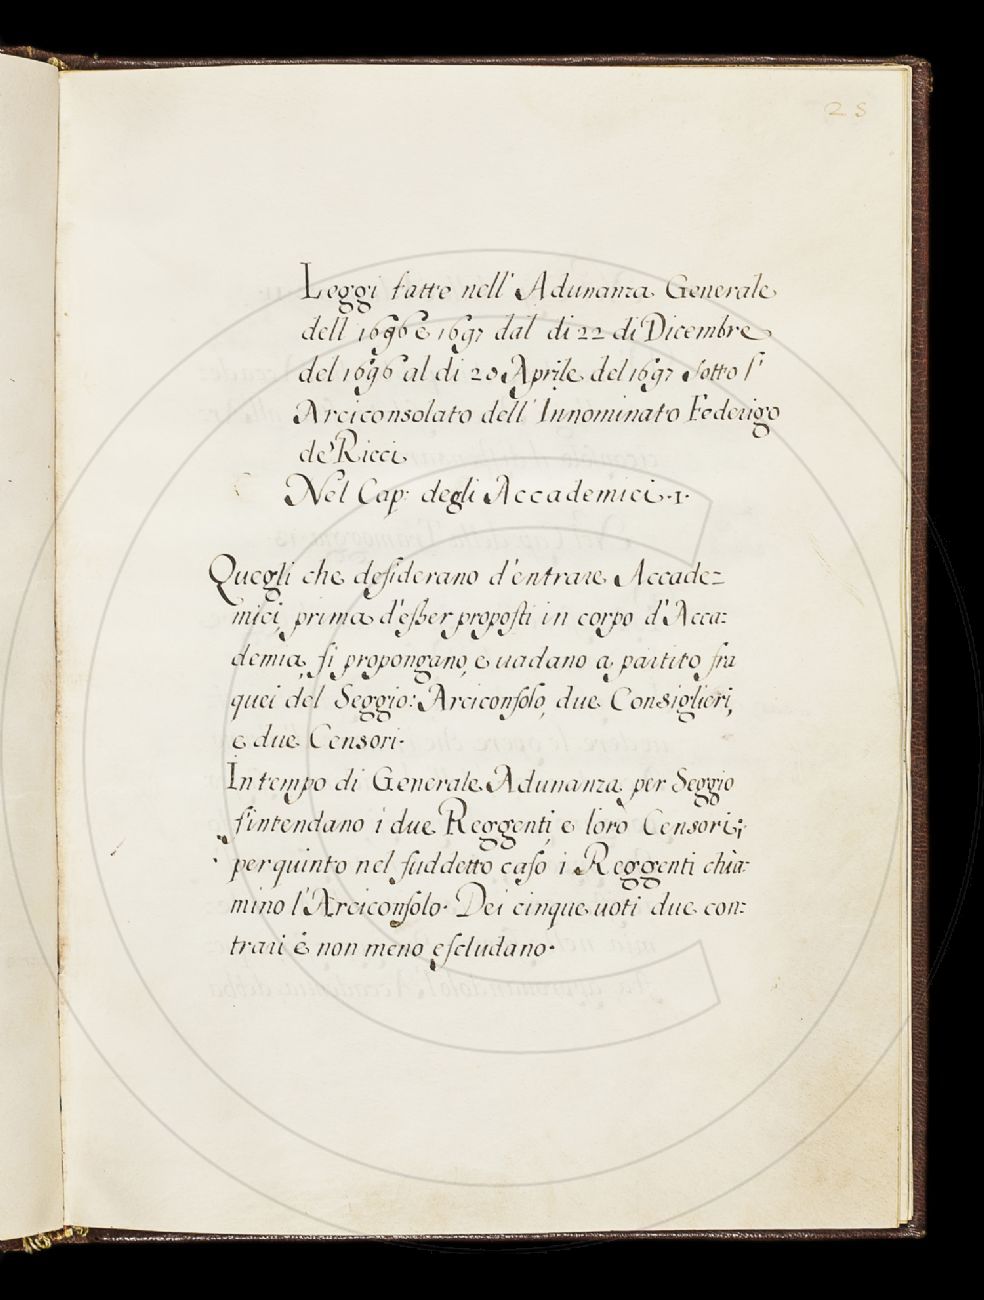 28
Leggi fatte nell' Adunanza Generale
dell 1696 e 1697 dal di 22 di Dicembre
del 1696 al di 28 Aprile del 1697 sotto l'
Arciconsolato dell' Innominato Federigo
de' Ricci
Nel Cap: degli Accademici ·1·
Quegli che desiderano d'entrare Accade=
mici, prima d'esser proposti in corpo d'Acca:
demia, si propongano, e uadano a partito fra
quei del Seggio: Arciconsolo, due Consiglieri,
e due Censori·
In tempo di Generale Adunanza per Seggio
s'intendano i due Reggenti, e loro Censori;
per quinto nel suddetto caso i Reggenti chia:
mino l'Arciconsolo· Dei cinque uoti due con:
trarii e non meno escludano·